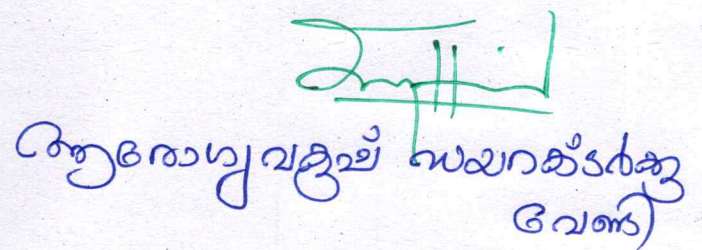 ആരോഗ്യവകുപ്പ് ഡയറക്ടർക്കു
വേണ്ടി